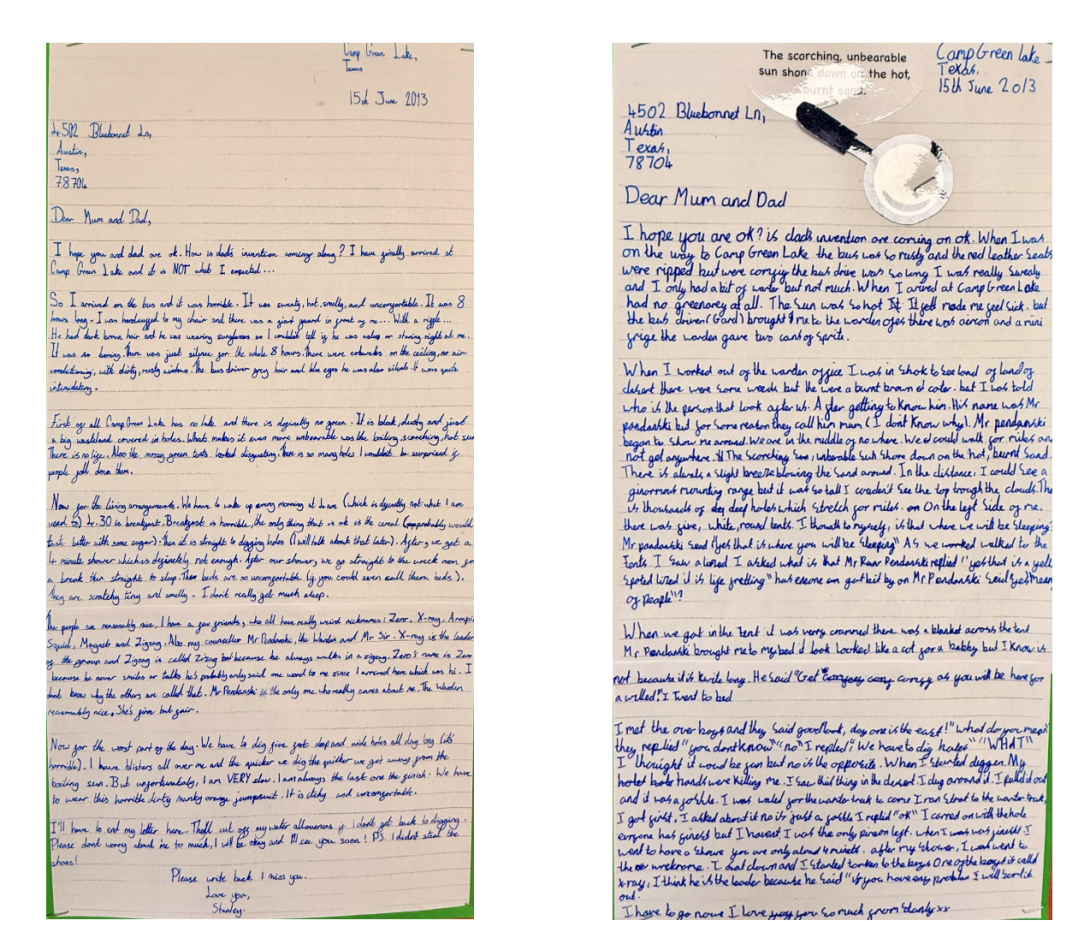 Camp Green Lake,
Texas
15th June 2013
4502 Bluebonnet Ln,
Austin,
Texas,
78704
Dear Mum and Dad,
I hope you and dad are ok. How is dads invention coming along? I have finally arrived at
Camp Green Lake and it is NOT what I expected...
So I arrived on the bus and it was horrible. It was sweaty, hot, smelly, and uncomfortable. It was 8
hours long. I was handcuffed to my chair and there was a giant guard in front of me... With a riffle...
He had dark brown hair and he was wearing sunglasses so I couldnt tell if he was asleep or staring right at me.
It was so boring. There was just silence for the whole 8 hours. There were cobwebs on the ceiling, no air
conditioning, with dirty, rusty windows. The bus driver grey hair and blue eyes he was also silent. It was quite
intimidating.
First of all Camp Green Lake has no lake and there is definitly no green. It is bleak, dusty and just
a big wasteland covered in holes. Whats makes it even more unbearable was the boiling, scorching, hot sun
There is no life. Also the messy green tents looked disgusting. There is so many holes I wouldnt be surprised if
people fell down them.
Now for the living arrangements. We have to wake up every morning at (which is not what I am
used to) 4.30 in breakfast. Breakfast is horrible, the only thing that is ok is the cereal (probably would
taste better with some sugar). Then it is straight to digging holes (I will talk about that later). After, we get a
4 minute shower which is definately not enough. After our shower, we go straight to the wreck room for
a break then straight to sleep. Then beds are so uncomfortable (if you could even call them beds).
They are scratchy tiny and smelly. I dont really get much sleep.
The people are reasonably nice, I have a few friends, who all have really weird nicknames: Zero, X-ray, Armpit
Squid, Magnet and Zigzag. Also my councellor Mr Pendanski, the Warden and Mr Sir. X-ray is the leader
of the group and Zigzag is called Zigzag because he always walks in a zigzag. Zero's name is Zero
because he never smiles or talks he's probably only said one word to me since I arrived here which was hi. I
dont know why the others are called that. Mr Pendanski is the only one who really cares about me. The Warden
reasonably nice. She's firm but fair.
Now for the worst part of the day. We have to dig five foot deep and wide holes all day long (its
horrible). I have blisters all over me and the quicker we dig the quicker we get away from the
boiling sun. But unfortunately, I am VERY slow. I am always the last one to finish. We have
to wear this horrible dirty manky orange jumpsuit. It is itchy and uncomfortable.
I'll have to end my letter here. Theyll cut off my water allowance if I dont get back to digging.
Please dont worry about me to much, I will be okay and I'll see you soon! P.S. I didnt steal the
shoes!
Please write back I miss you.
Love you,
Stanley.
The scorching, unbearable
sun shone down on the hot,
burnt sand.
Camp Green lake
Texas.
15th June 2013
4502 Bluebonnet Ln,
Austin
Texas,
78704
Dear Mum and Dad
I hope you are ok? is dad's invention are coming on ok. When I was
on the way to Camp Green Lake the bus was so rusty and the red leather Seats
were ripped but were the bus drive was so long I was really Sweaty
and I only had a bit of water but not much. When I arived at Camp Green Lake
had no greenorey at all. The Sun was So hot It made me feel Sick. but
the bus driver (Gard) brought me to the warden offes there was aircon and a mini
frige the warden gave two cans of Sprite.
When I worked out of the warden office I was in Shock to See land of land of
desert there were Some weeds but the were a burnt brown coler. but I was told
who is the person that look after us. After getting to know him. His name was Mr
pendanski but for Some reason they call him mum (I dont Know why). Mr pendanski
began to Show me around. We are in the middle of no where. We could walk for miles an
not get anywhere. The Scorching Sun, unberable Sun Shone down on the hot, burnt Sand.
There is always a Slight breeze blowing the Sand around. In the distance, I could See a
ginormous mounting range but it was So tall I couldn't See the top trough the clouds. The
is thousands of deep holes which Stretch for miles. on On the left Side of me.
there was five, white, round tents. I thought to myself, is that where we will be Sleeping?
Mr pandanski Seed "yes that is where you will be Sleeping" As we worked walked to the
tents I Saw a lized I asked what is that Mr Pendanski replied "yes that is a yell
Spoted lized it is life fretting" has eneone on got bit by on Mr Pendanski Seid "yes mean
of peaple"?
When we got in the tent it was very crammed there was a blanket across the tent
Mr Pendanski brought me to my bed it look Looked like a cot for a babby but I Know is
not because it is kwite long. He Said "Get comfy as you will be here for
a willed". I went to bed
I met the over boys and they Said good luck, day one is the east!" "what do you mean"
they replied "you dont know" "no" I repled". We have to dig holes" "WHAT"
I thought it woud be fun but no is the opposite. When I Started diggen. My
hands were Killing me. I Saw this thing in the desert. I dug around it. I pulld it out
and it was a foshle. I was for the to come I ran to the
I got first. I asked about it no is just a foshle I repled "ok" I carred on with the hole
evryone has finest but I havent, I was the only person left. when I was finesht I
went to have a Showe you are only alowd 4 minets. after my Shower, I went to
the wrekrome. I sat down and I Started to the boys One of the boys is called
X-ray, I think he is the leader because he Said "if you have eny problem I will Sort it
out.
I have to go nowe I love you So much from Stanly xx